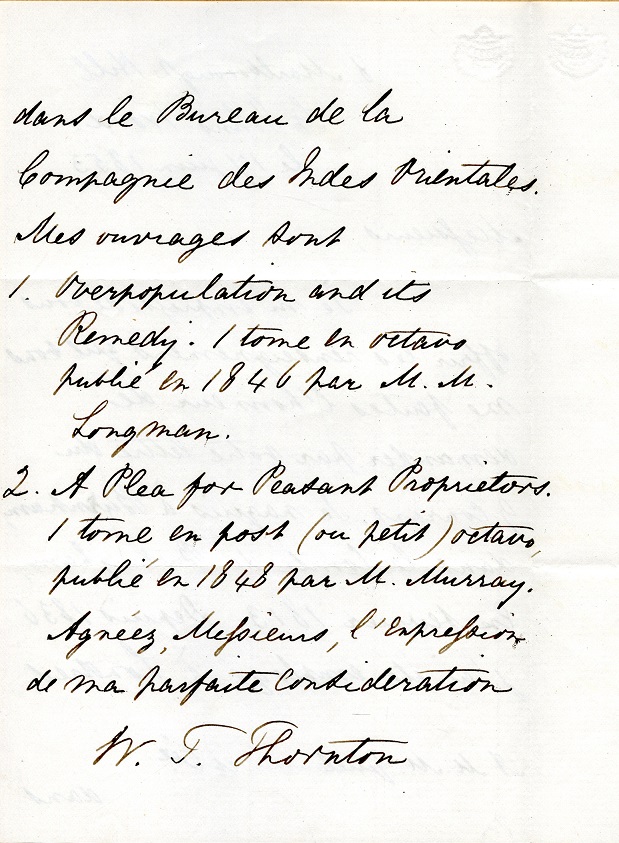 dans le Bureau de la
Compagnie des Indes Orientales.
Mes ouvrages sont
1. Overpopulation and its
Remedy. 1 tome en octavo
publié en 1846 par M. M.
Longman.
2. A Plea for Peasant Proprietors.
1 tome en post (ou petit) octavo,
publié en 1848 par M. Murray.
Agnéez, Messieurs, l'Expression
de ma parfaite Consideration
W. T. Thornton